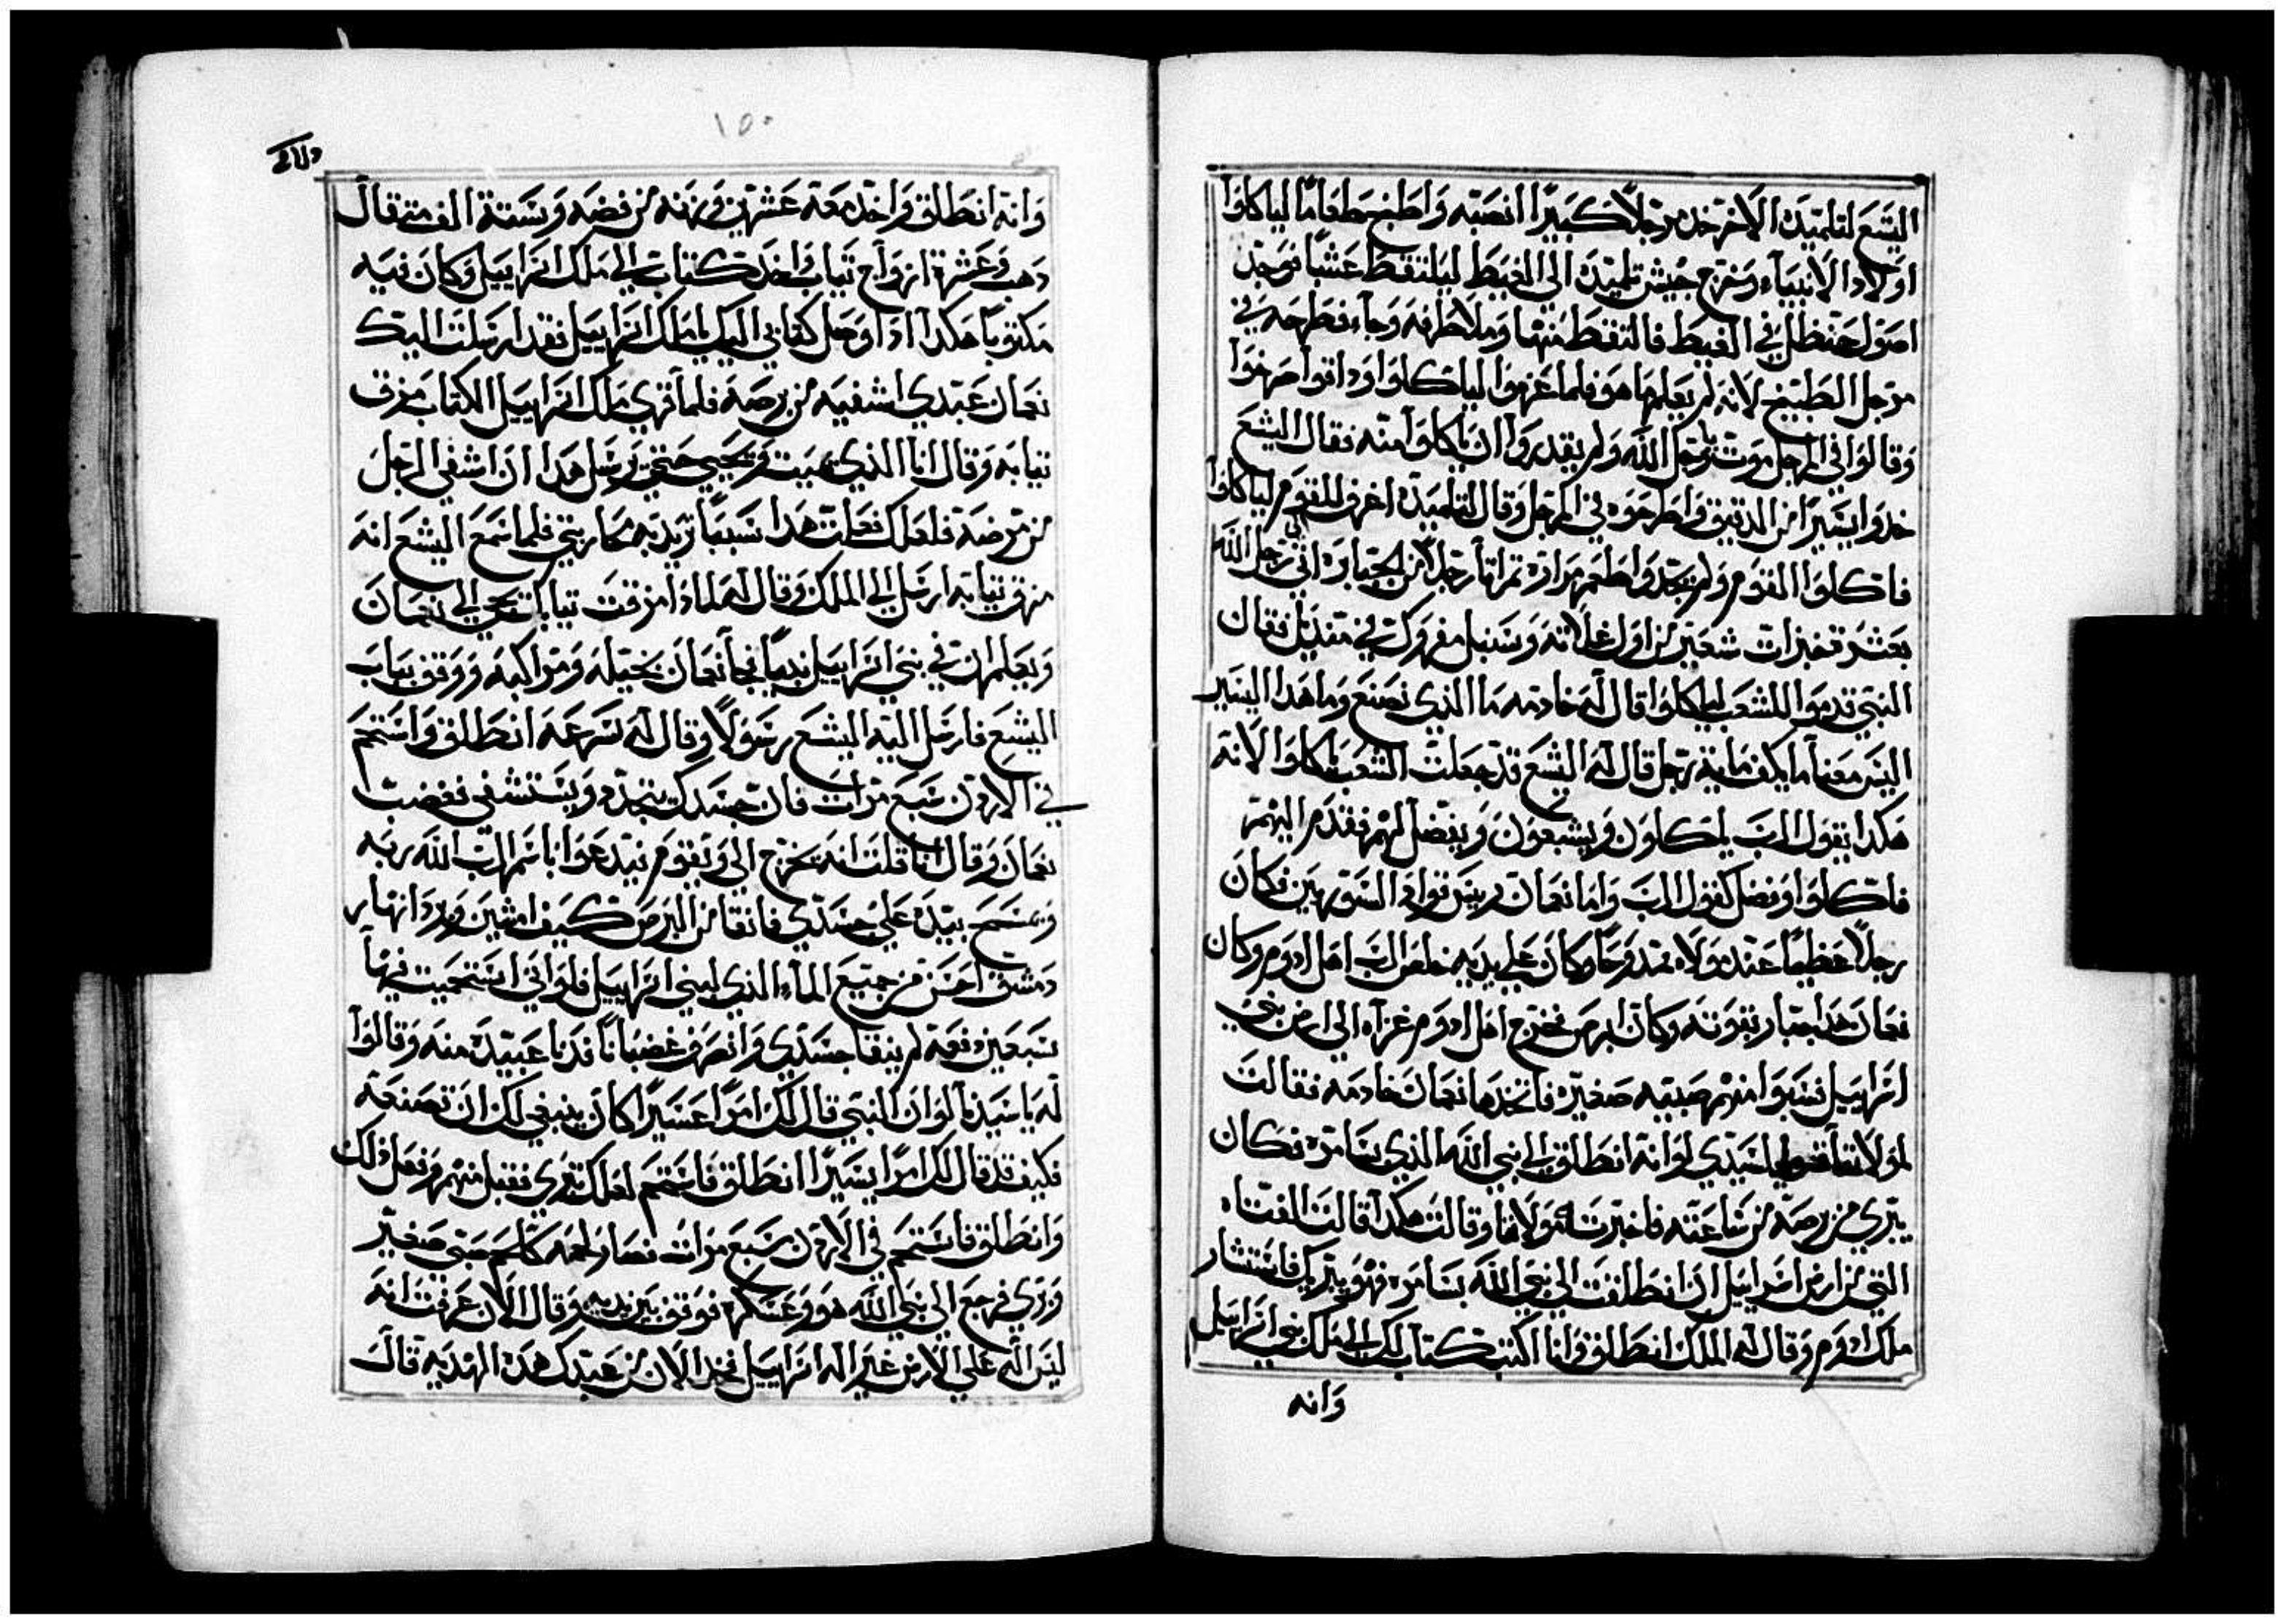 اليشع لتلميذه الاخر خد مرجلاً كبيراً انصبه واطبخ طعاماً لياكلوا
اولاد الانبياء وخرج جيش تلميذه الى الغيط ليلتقط عشباً فوجد
اصول حنظل في الغيط فالتقط منها وملا طرفه وجاء فطرحه في
مرجل الطبيخ لانه لم يعلم ما هو فلما غرفوا لياكلوا وداقوا صرخوا
وقالوا في المرجل موت يا رجل الله ولم يقدروا ان ياكلوا منه فقال اليشع
خدوا يسيراً من الدقيق واطرحوه في المرجل وقال لتلميذه اغرف للقوم لياكلوا
فاكلوا القوم ولم يجدوا طعم مراره ثم اتا رجلاً من الجبابره الى رجل الله
بعشر خبزات شعير من اول غلاته وسنبل مفروك في منديل فقال
النبي قدموا للشعب لياكلوا قال له خادمه ما الذي نصنع وما هدا اليسير
اليس معنا ما يكف ماية رجل قال له اليشع قد جعلت الشعب ياكلوا لانه
هكدا يقول الرب ياكلون ويشبعون ويفضل لهم فقدم اليهم
فاكلوا وفضل كقول الرب واما نعمان ريس قواد السوريين فكان
رجلاً عظيماً عند مولاه ممدوحاً وكان على يديه خلص الرب اهل ادوم وكان
نعمان هدا جبار بقوته وكان ابرص فخرج اهل ادوم غزاه الى ارض بني
اسراييل فسبوا منهم صبيه صغيره فاتخدها نعمان خادمه فقالت
لمولاتها يا سيدتي لو انه انطلق الى نبي الله الذي بسامره فكان
يبري من برصه من ساعته فاخبرت مولاها وقالت هكدا قالت الفتاه
التي من ارض اسراييل ان انطلقت الى نبي الله بسامره فهو يبريك فاستشار
ملك ادوم وقال له الملك انطلق وانا اكتب كتاب لك الى ملك بني اسراييل
وانه
١٥٠
وانه انطلق واخد معه عشرين بدره من فضه وستة الف متقال
دهب وعشرة ازواج تياب واخد كتاب الى ملك اسراييل وكان فيه
مكتوباً هكدا ادا وصل كتابي اليك يا ملك اسراييل فقد ارسلت اليك
نعمان عبدي اشفيه من برصه فلما قري ملك اسراييل الكتاب مزق
تيابه وقال انا الذي يميت ويحيي حتى يرسل هدا ان اشفي الرجل
من مرضه فلعلك فعلت هدا سبباً تريد به محاربتي فلما سمع اليشع انه
مزق تيابه ارسل الى الملك وقال له لمادا مزقت تيابك يجي الى نعمان
ويعلم ان في بني اسراييل نبياً فجا نعمان بخيله ومواكبه ووقف بباب
اليشع فارسل اليه اليشع رسولاً وقال له بسرعه انطلق واستحم
في الاردن سبع مرات فان جسدك يتجدد ويستشفي فغضب
نعمان وقال انا قلت انه يخرج الي ويقوم يدعوا باسم الرب الله ربه
ويمسح بيده على جسدي فانقا من البرص كيف امشين وبردا انهار
دمشق احسن من جميع الماء الذي لبني اسراييل فلو اني استحميت فيها
سبعين دفعه لم ينقا جسدي وانصرف غضباناً فدنا عبيده منه وقالوا
له يا سيدنا لو ان النبي قال لك امراً عسيراً كان ينبغي لك ان تصنعه
فكيف قد قال لك امراً يسيراً انطلق فاستحم لعلك تبري فقبل منهم وفعل ذلك
وانطلق فاستحم في الاردن سبع مرات فصار لحمه كلحم صبي صغير
وبري فرجع الى نبي الله هو وعسكره فوقف بين يديه وقال الان عرفت انه
ليس اله على الارض غير اله اسراييل فخد الان من عبدك هده الهديه قال